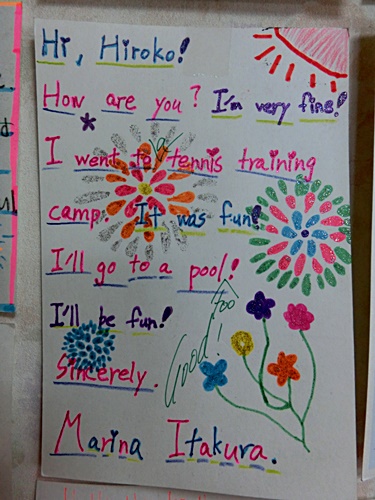 Hi, Hiroko!
How are you? I'm very fine!
I went to a tennis training
camp. It was fun!
I'll go to a pool! too
I'll be fun!
Good!
Sincerely.
Marina Itakura.